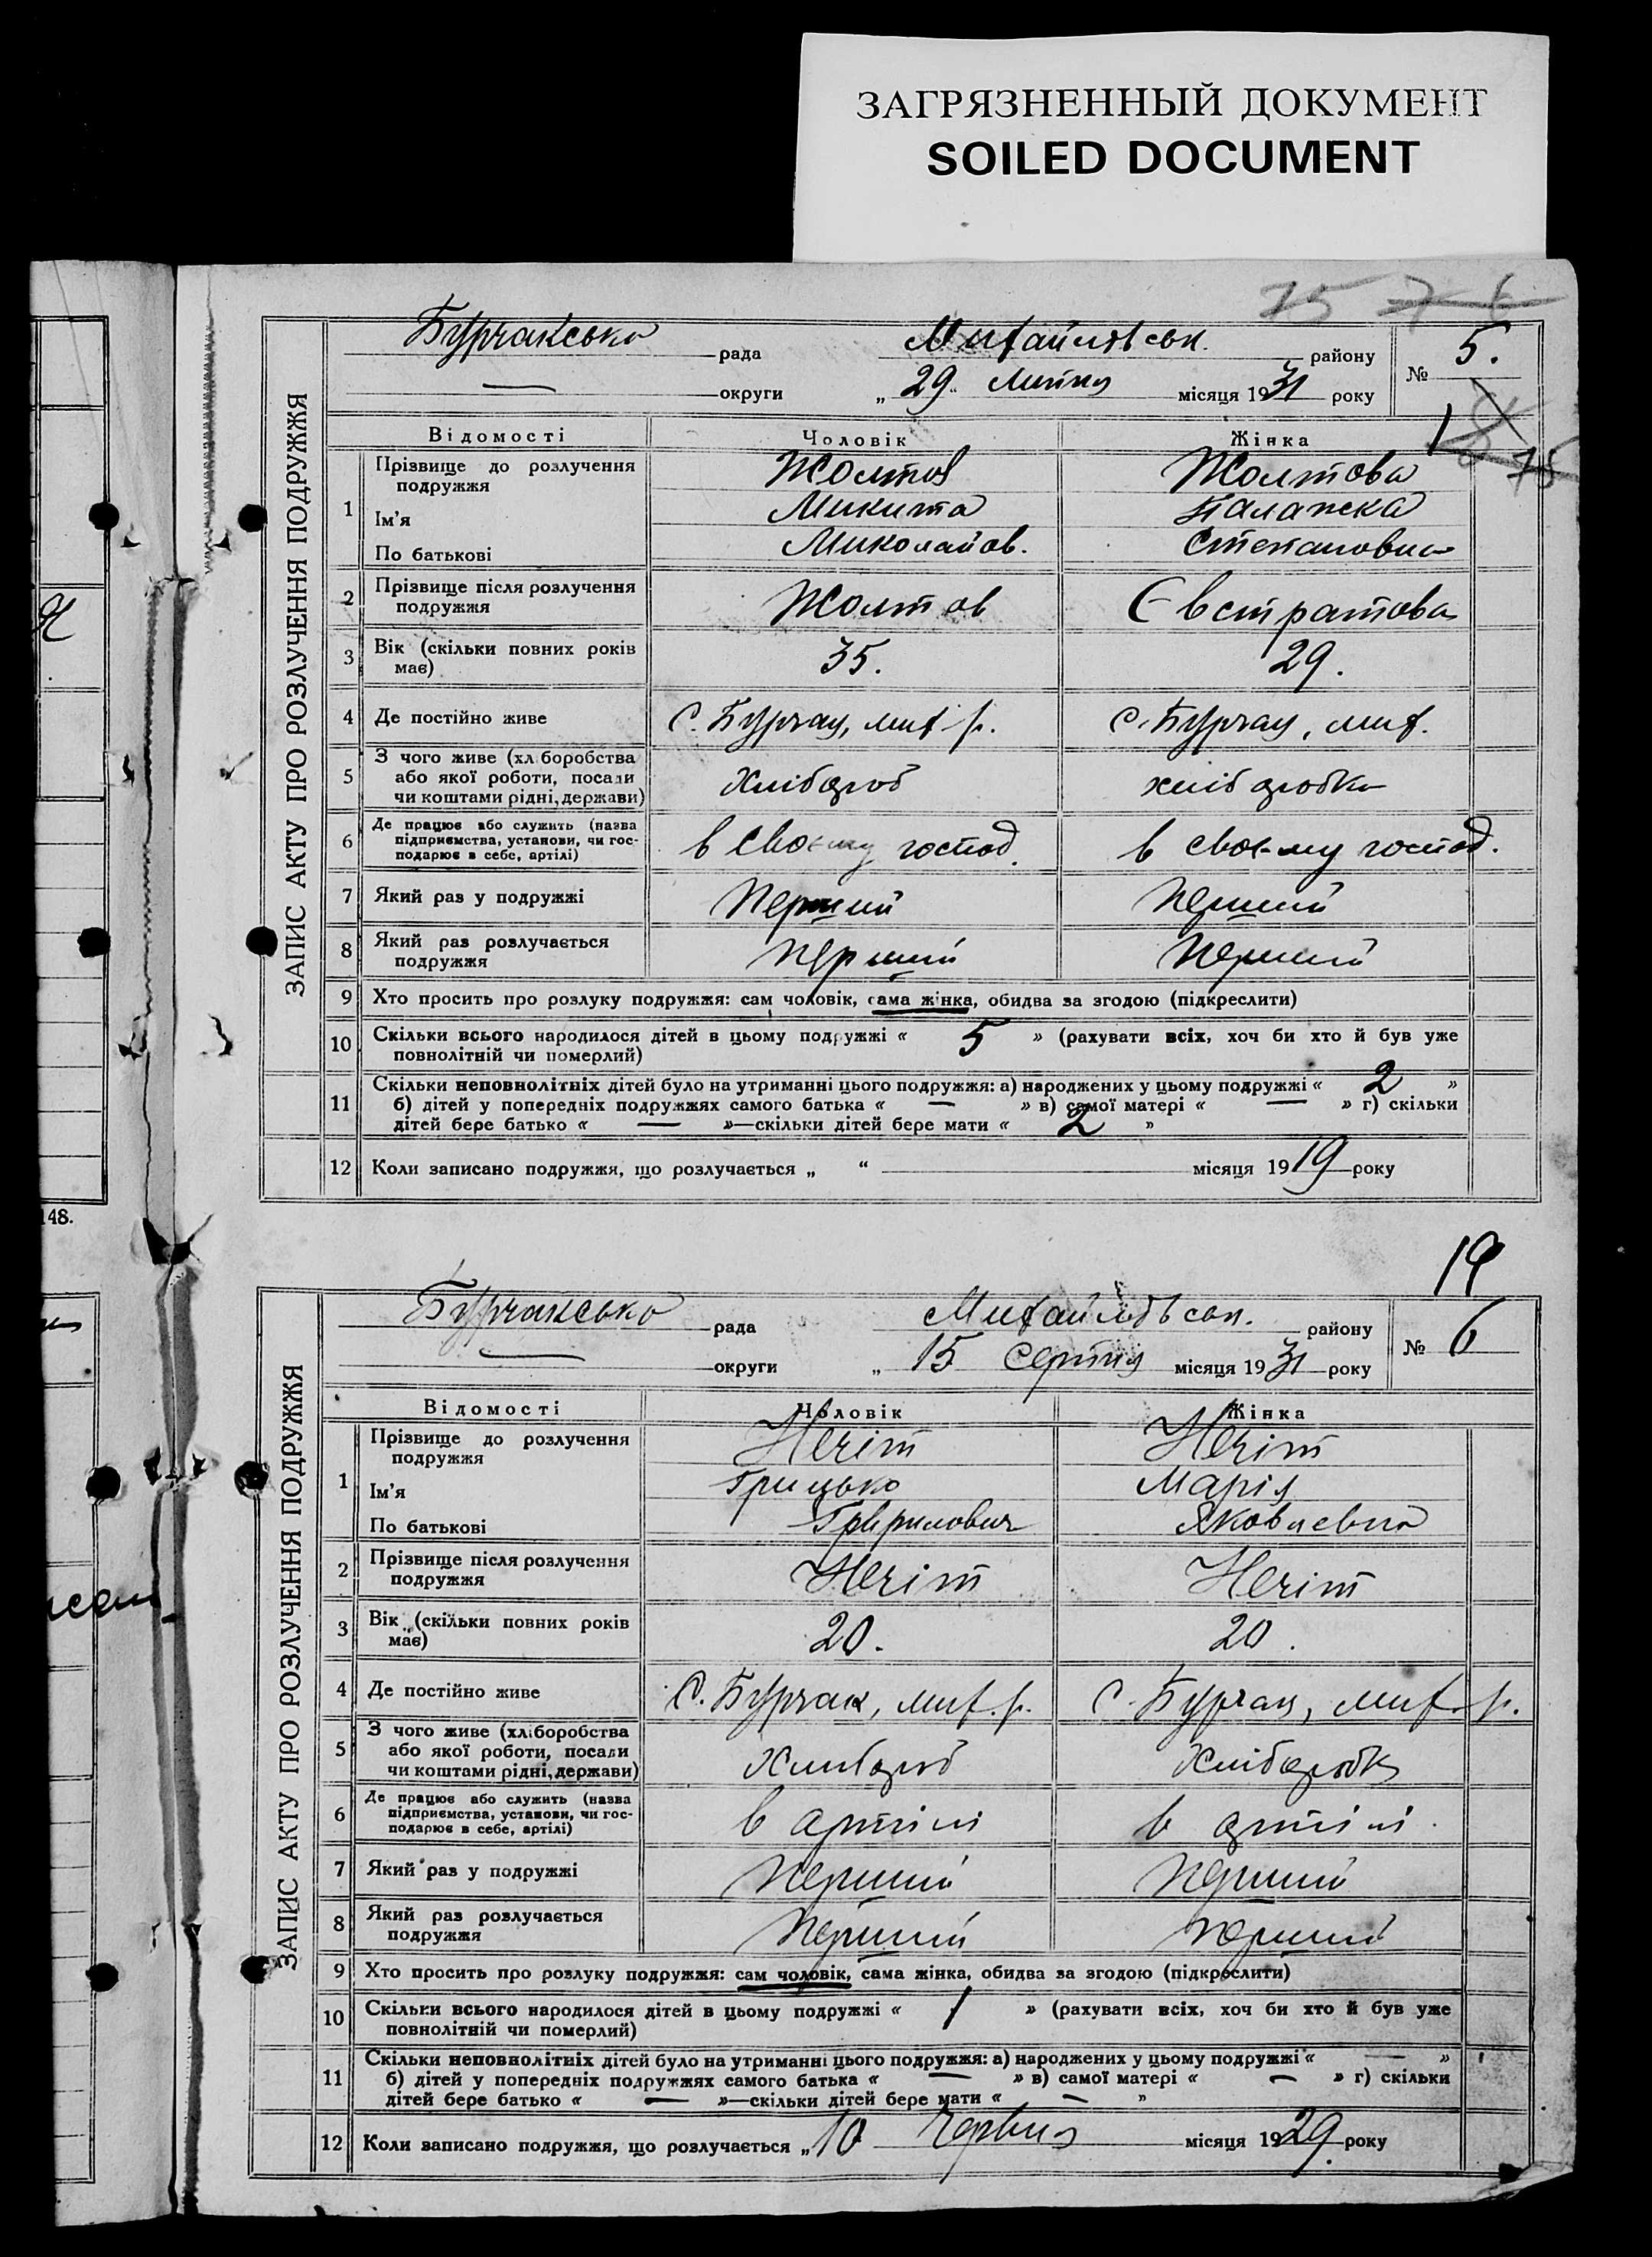 ЗАГРЯЗНЕННЫЙ ДОКУМЕНТ
SOILED DOCUMENT
75
ЗАПИС АКТУ ПРО РОЗЛУЧЕННЯ ПОДРУЖЖЯ
Бурчакська рада Михайлівськ. району № 5.
— округи „ 29 " Липня місяця 1931 року
Відомості Чоловік Жінка
1 Прізвище до розлучення подружжя Жолтов Жолтова
Ім'я Микита Палажка
По батькові Миколайов. Степановна
2 Прізвище після розлучення подружжя Жолтов Євстратова
3 Вік (скільки повних років має) 35. 29.
4 Де постійно живе С. Бурчак, мих. р. С. Бурчак, мих.
5 З чого живе (хліборобства або якої роботи, посади чи коштами рідні, держави) Хлібороб хліборобка
6 Де працює або служить (назва підприємства, установи, чи господарює в себе, артілі) в своєму господ. в своєму господ.
7 Який раз у подружжі Перший Перший
8 Який раз розлучається подружжя Перший Перший
9 Хто просить про розлуку подружжя: сам чоловік, сама жінка, обидва за згодою (підкреслити)
10 Скільки всього народилося дітей в цьому подружжі « 5 » (рахувати всіх, хоч би хто й був уже
повнолітній чи померлий)
11 Скільки неповнолітніх дітей було на утриманні цього подружжя: а) народжених у цьому подружжі « 2 »
б) дітей у попередніх подружжях самого батька « — » в) самої матері « — » г) скільки
дітей бере батько « — »—скільки дітей бере мати « 2 »
12 Коли записано подружжя, що розлучається „ “ місяця 1919 року
148.
19
ЗАПИС АКТУ ПРО РОЗЛУЧЕННЯ ПОДРУЖЖЯ
Бурчакська рада Михайлівськ. району № 6
— округи „ 15 Серпня місяця 1931 року
Відомості Чоловік Жінка
1 Прізвище до розлучення подружжя Нечіт Нечіт
Ім'я Грицько Марія
По батькові Гаврилович Яковлевна
2 Прізвище після розлучення подружжя Нечіт Нечіт
3 Вік (скільки повних років має) 20. 20.
4 Де постійно живе С. Бурчак, мих. р. С. Бурчак, мих. р.
5 З чого живе (хліборобства або якої роботи, посади чи коштами рідні, держави) Хлібороб Хліборобка
6 Де працює або служить (назва підприємства, установи, чи господарює в себе, артілі) в артілі в артілі
7 Який раз у подружжі Перший Перший
8 Який раз розлучається подружжя Перший Перший
9 Хто просить про розлуку подружжя: сам чоловік, сама жінка, обидва за згодою (підкреслити)
10 Скільки всього народилося дітей в цьому подружжі « 1 » (рахувати всіх, хоч би хто й був уже
повнолітній чи померлий)
11 Скільки неповнолітніх дітей було на утриманні цього подружжя: а) народжених у цьому подружжі « — »
б) дітей у попередніх подружжях самого батька « — » в) самої матері « — » г) скільки
дітей бере батько « — »—скільки дітей бере мати « — »
12 Коли записано подружжя, що розлучається „ 10 Червня місяця 1929. року